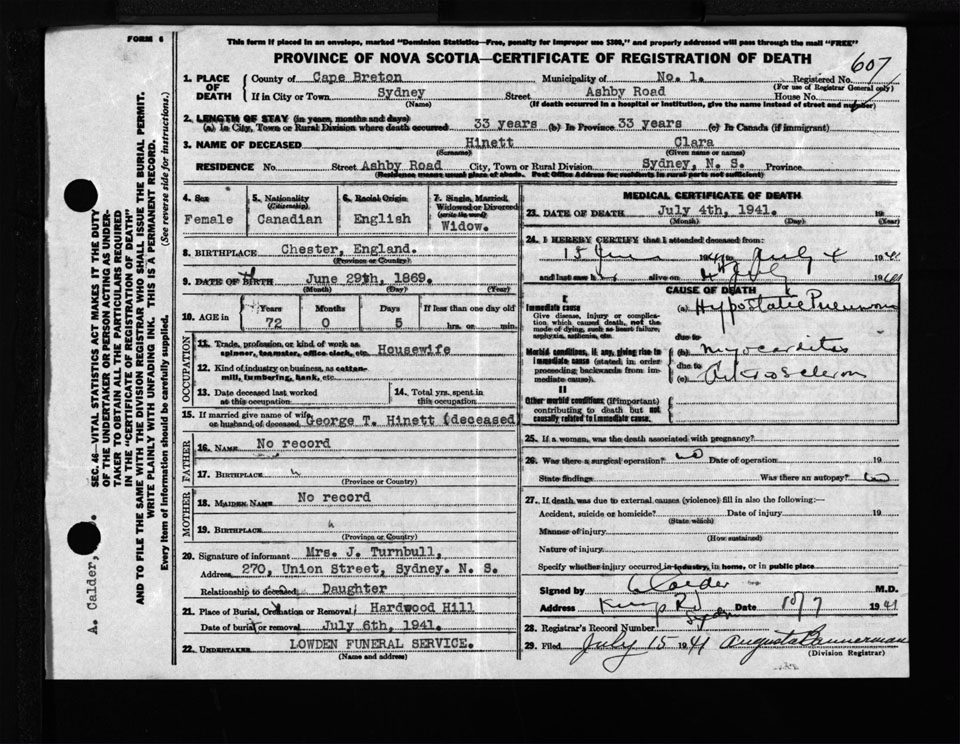 FORM 6
This form if placed in an envelope, marked "Dominion Statistics—Free, penalty for improper use $300," and properly addressed will pass through the mail "FREE"
PROVINCE OF NOVA SCOTIA—CERTIFICATE OF REGISTRATION OF DEATH
607
1. PLACE OF DEATH
County of Cape Breton Municipality of No. 1. Registered No.
(For use of Registrar General only)
If in City or Town Sydney Street Ashby Road House No.
(Name) (If death occurred in a hospital or institution, give the name instead of street and number)
2. LENGTH OF STAY (in years, months and days)
(a) In City, Town or Rural Division where death occurred 33 years (b) In Province 33 years (c) In Canada (if immigrant)
3. NAME OF DECEASED Hinett Clara
(Surname) (Given name or names)
RESIDENCE No. Street Ashby Road City, Town or Rural Division Sydney, N. S. Province
(Residence means usual place of abode. Post Office Address for residents in rural parts not sufficient)
4. Sex
Female
5. Nationality
(Citizenship)
Canadian
6. Racial Origin
English
7. Single, Married, Widowed or Divorced
(write the word)
Widow.
8. BIRTHPLACE Chester, England.
(Province or Country)
9. DATE OF BIRTH June 29th, 1869.
(Month) (Day) (Year)
10. AGE in
Years Months Days If less than one day old
72 0 5 hrs. or min.
OCCUPATION
11. Trade, profession or kind of work as spinner, teamster, office clerk, etc. Housewife
12. Kind of industry or business, as cotton-mill, lumbering, bank, etc.
13. Date deceased last worked at this occupation
14. Total yrs. spent in this occupation
15. If married give name of wife or husband of deceased George T. Hinett (deceased
FATHER
16. NAME No record
17. BIRTHPLACE "
(Province or Country)
MOTHER
18. MAIDEN NAME No record
19. BIRTHPLACE "
(Province or Country)
20. Signature of informant Mrs. J. Turnbull,
Address 270, Union Street, Sydney. N. S.
Relationship to deceased Daughter
21. Place of Burial, Cremation or Removal Hardwood Hill
Date of burial or removal July 6th, 1941.
22. UNDERTAKER LOWDEN FUNERAL SERVICE.
(Name and address)
MEDICAL CERTIFICATE OF DEATH
23. DATE OF DEATH July 4th, 1941. 19
(Month) (Day) (Year)
24. I HEREBY CERTIFY that I attended deceased from:
15 June 1941 to July 4 1941
and last saw h alive on 4 July 1941
CAUSE OF DEATH
I
Immediate cause
Give disease, injury or complication, which caused death, not the mode of dying, such as heart failure, asphyxia, asthenia, etc.
(a) Hypostatic Pneumonia
due to
Morbid conditions, if any, giving rise to immediate cause (stated in order proceeding backwards from immediate cause).
(b) Myocarditis
due to
(c)
II
Other morbid conditions (if important) contributing to death but not causally related to immediate cause.
25. If a woman, was the death associated with pregnancy?
26. Was there a surgical operation? No Date of operation 19
State findings Was there an autopsy? No
27. If death was due to external causes (violence) fill in also the following:—
Accident, suicide or homicide? Date of injury 19
(State which)
Manner of injury
(How sustained)
Nature of injury
Specify whether injury occurred in industry, in home, or in public place
Signed by Calder M.D.
Address Kings Rd Date 10/7 1941
28. Registrar's Record Number
29. Filed July 15 1941 Augusta Bannerman
(Division Registrar)
SEC. 46—VITAL STATISTICS ACT MAKES IT THE DUTY OF THE UNDERTAKER OR PERSON ACTING AS UNDERTAKER TO OBTAIN ALL THE PARTICULARS REQUIRED IN THE "CERTIFICATE OF REGISTRATION OF DEATH"
AND TO FILE THE SAME WITH THE DIVISION REGISTRAR WHO SHALL ISSUE THE BURIAL PERMIT.
WRITE PLAINLY WITH UNFADING INK. THIS IS A PERMANENT RECORD.
Every item of Information should be carefully supplied. (See reverse side for instructions.)
A. Calder,